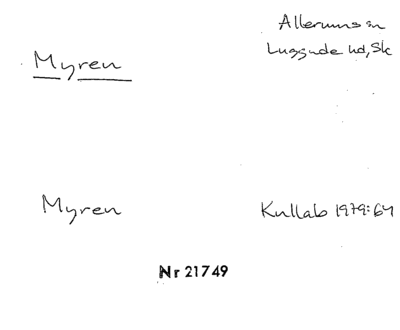 Myren
Allerums sn
Luggude hd, Sk
Myren
Kullab 1979:64
Nr 21749